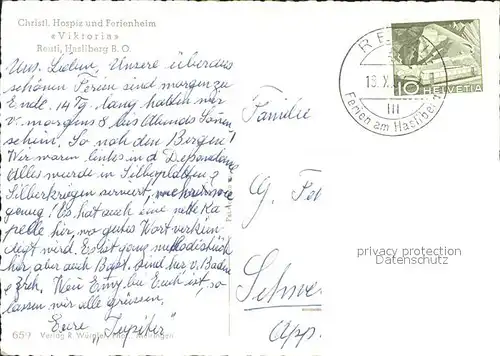 Christl. Hospiz und Ferienheim
«Viktoria»
Reuti, Hasliberg B. O.
Uns. Lieben, Unsere überaus
schönen Ferien sind morgen zu
Ende. 14 Tg. lang hatten wir
v. morgens 8 bis Abends Sonnen
schein. So nah den Bergen!
Wir waren links in d. Dependance
Alles wurde in Silberplatten &
Silberkrügen serviert,
genug! Es hat auch eine nette Ka
pelle hier, wo gutes Wort verkün-
digt wird. Es ist ganz methodistisch
hier, aber auch Bapt. sind hier, v. Baden
& Zrch. Wenn Emmy bei Euch ist, so
lassen wir alle grüssen,
Eure
659 Verlag R. Würgler, Meiringen
Familie
G.
Schwe
App.
RE
HELVETIA
10
III
Ferien am Hasliberg
privacy protection
Datenschutz